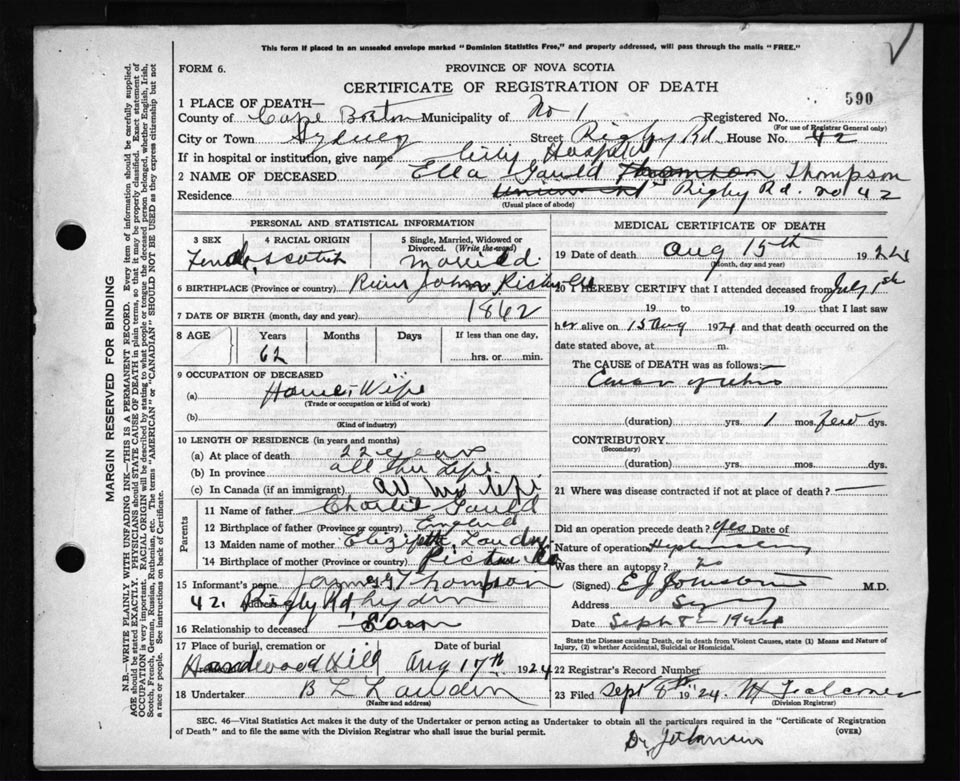 This form if placed in an unsealed envelope marked "Dominion Statistics Free," and properly addressed, will pass through the mails "FREE."
FORM 6.
PROVINCE OF NOVA SCOTIA
CERTIFICATE OF REGISTRATION OF DEATH
590
MARGIN RESERVED FOR BINDING
N.B.—WRITE PLAINLY WITH UNFADING INK—THIS IS A PERMANENT RECORD. Every item of information should be carefully supplied.
AGE should be stated EXACTLY. PHYSICIANS should STATE CAUSE OF DEATH in plain terms, so that it may be properly classified. Exact statement of
OCCUPATION is very important. RACIAL ORIGIN will be described by stating to what people or tongue the deceased person belonged, whether English, Irish,
Scotch, French, German, Russian, Ruthenian, etc. The terms "AMERICAN" or "CANADIAN" SHOULD NOT BE USED as they express citizenship but not
a race or people. See instructions on back of Certificate.
1 PLACE OF DEATH—
County of Cape Breton Municipality of No 1 Registered No.
(For use of Registrar General only)
City or Town Sydney Street Rigby Rd. House No. 42
If in hospital or institution, give name City Hospital
2 NAME OF DECEASED Ella Gauld Thomson Thompson
Residence Rigby Rd. no 42
(Usual place of abode)
PERSONAL AND STATISTICAL INFORMATION
3 SEX 4 RACIAL ORIGIN 5 Single, Married, Widowed or
Divorced. (Write the word)
Female Scotch Married
6 BIRTHPLACE (Province or country) River John
7 DATE OF BIRTH (month, day and year) 1862
8 AGE Years Months Days If less than one day,
62 hrs. or min.
9 OCCUPATION OF DECEASED
(a) House Wife
(Trade or occupation or kind of work)
(b)
(Kind of industry)
10 LENGTH OF RESIDENCE (in years and months)
(a) At place of death 22 years
(b) In province all her life
(c) In Canada (if an immigrant) All her life
Parents
11 Name of father Charlie Gauld
12 Birthplace of father (Province or country) England
13 Maiden name of mother Elizabeth
14 Birthplace of mother (Province or country)
15 Informant's name James Thompson
Address 42 Rigby Rd, Sydney
16 Relationship to deceased
17 Place of burial, cremation or Date of burial
Hardwood Hill Aug 17th 1924
18 Undertaker B L
(Name and address)
MEDICAL CERTIFICATE OF DEATH
19 Date of death Aug 15th 1924
(Month, day and year)
20 I HEREBY CERTIFY that I attended deceased from July 1st
19 to 19 that I last saw
her alive on 15 Aug 1924 and that death occurred on
date stated above, at m.
The CAUSE of DEATH was as follows:—
Cancer
(duration) yrs. 1 mos. few dys.
CONTRIBUTORY.
(Secondary)
(duration) yrs. mos. dys.
21 Where was disease contracted if not at place of death?
Did an operation precede death? Yes Date of
Nature of operation
Was there an autopsy? no
(Signed) M.D.
Address Sydney
Date Sept 8 1924
State the Disease causing Death, or in death from Violent Causes, state (1) Means and Nature of
Injury, (2) whether Accidental, Suicidal or Homicidal.
22 Registrar's Record Number
23 Filed Sept 8th 1924. Falconer
(Division Registrar)
SEC. 46—Vital Statistics Act makes it the duty of the Undertaker or person acting as Undertaker to obtain all the particulars required in the "Certificate of Registration
of Death" and to file the same with the Division Registrar who shall issue the burial permit.
(OVER)